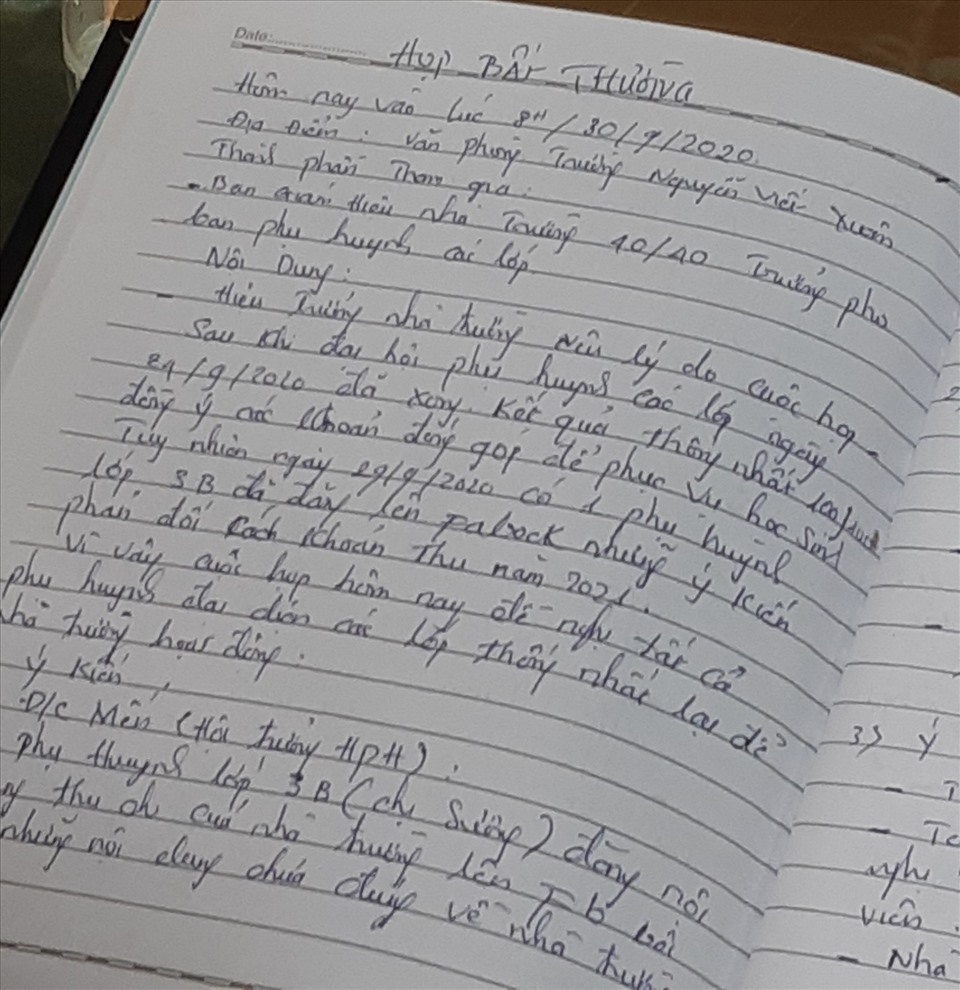 Date:
HỌP BẤT THƯỜNG
Hôm nay vào lúc 8H/30/9/2020.
Địa Điểm: Văn phòng Trường Nguyễn Viết Xuân
Thành phần Tham gia:
- Ban giám hiệu nhà Trường 40/40 Trưởng phó
ban phụ huynh các lớp.
Nội Dung:
- Hiệu Trưởng nhà trường nêu lý do cuộc họp
Sau khi đại hội phụ huynh các lớp ngày
24/9/2020 đã xong. Kết quả thống nhất 100/
đồng ý các khoản đóng góp để phục vụ học sinh
Tuy nhiên ngày 29/9/2020 có 1 phụ huynh
lớp 3B đã đăng lên Fabock những ý kiến
phản đối cách khoản thu năm 2021.
Vì vậy cuộc họp hôm nay đề nghị tất cả
phụ huynh đại diện các lớp thống nhất lại để
nhà trường hoạt động.
Ý kiến,
Đ/c Mến (Hội trưởng HPH):
Phụ Huynh lớp 3B (chị Sương) đăng nội
thu ch của nhà trường lên Fb bài
những nội dung chưa đúng về nhà trườ
3) Ý
- T
- Tc
nghị
viên.
- Nhà